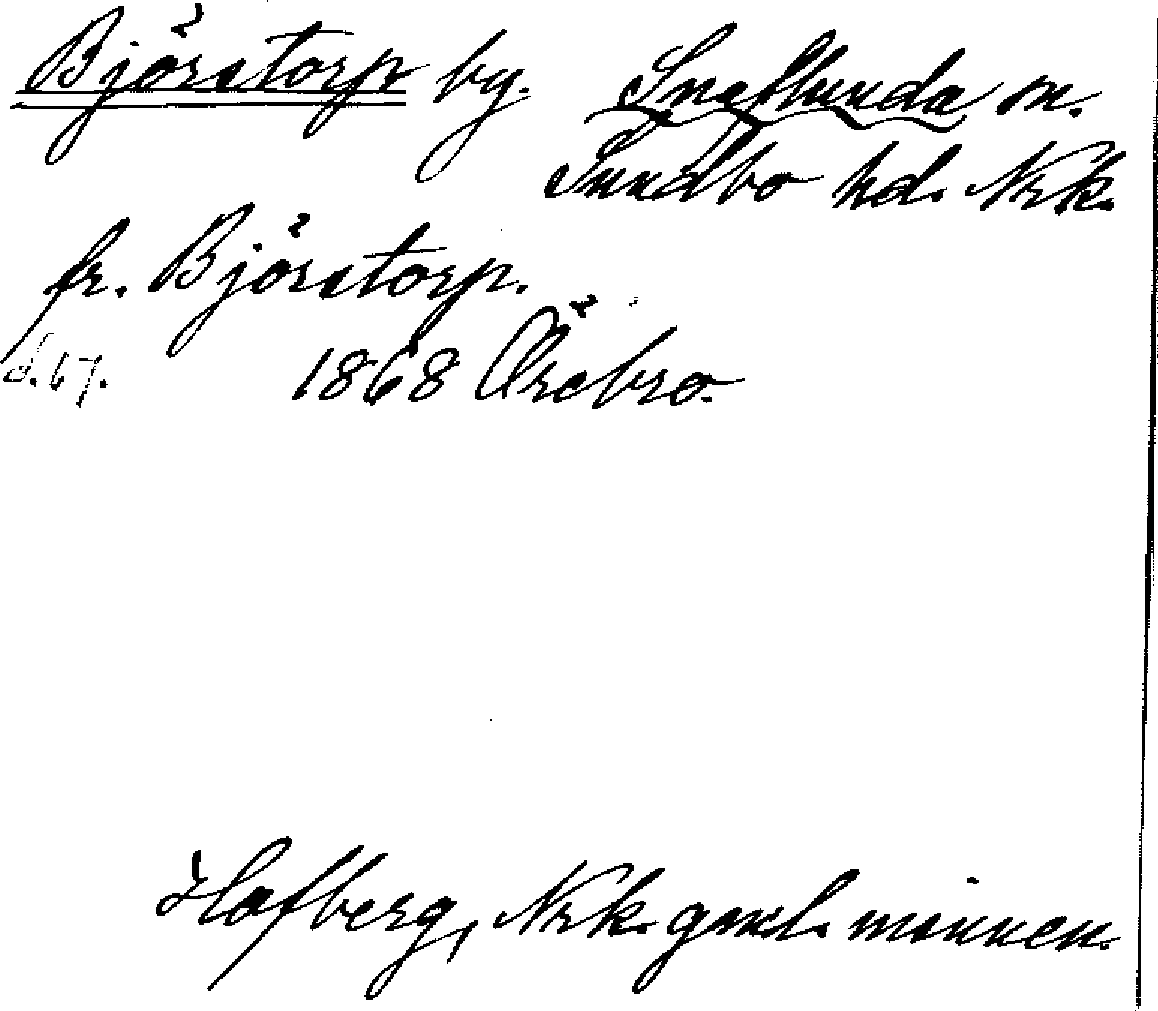 Björstorp by. Snaflunda sn.
Sundbo hd. Nrk.
fr. Björstorp.
d. 67. 1868 Örebro.
Hofberg, Nrk. gaml. minnen.